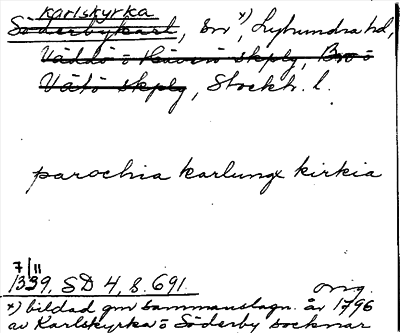 Karlskyrka
Söderbykarl, sn *), Lyhundra hd,
Väddö o Häverö skplg, Bro o
Vätö skplg, Stockh. l.
parochia karlungx kirkia
7/11
1339. SD 4, s. 691. orig.
*) bildad gm sammanslagn. år 1796
av Karlskyrka o Söderby socknar